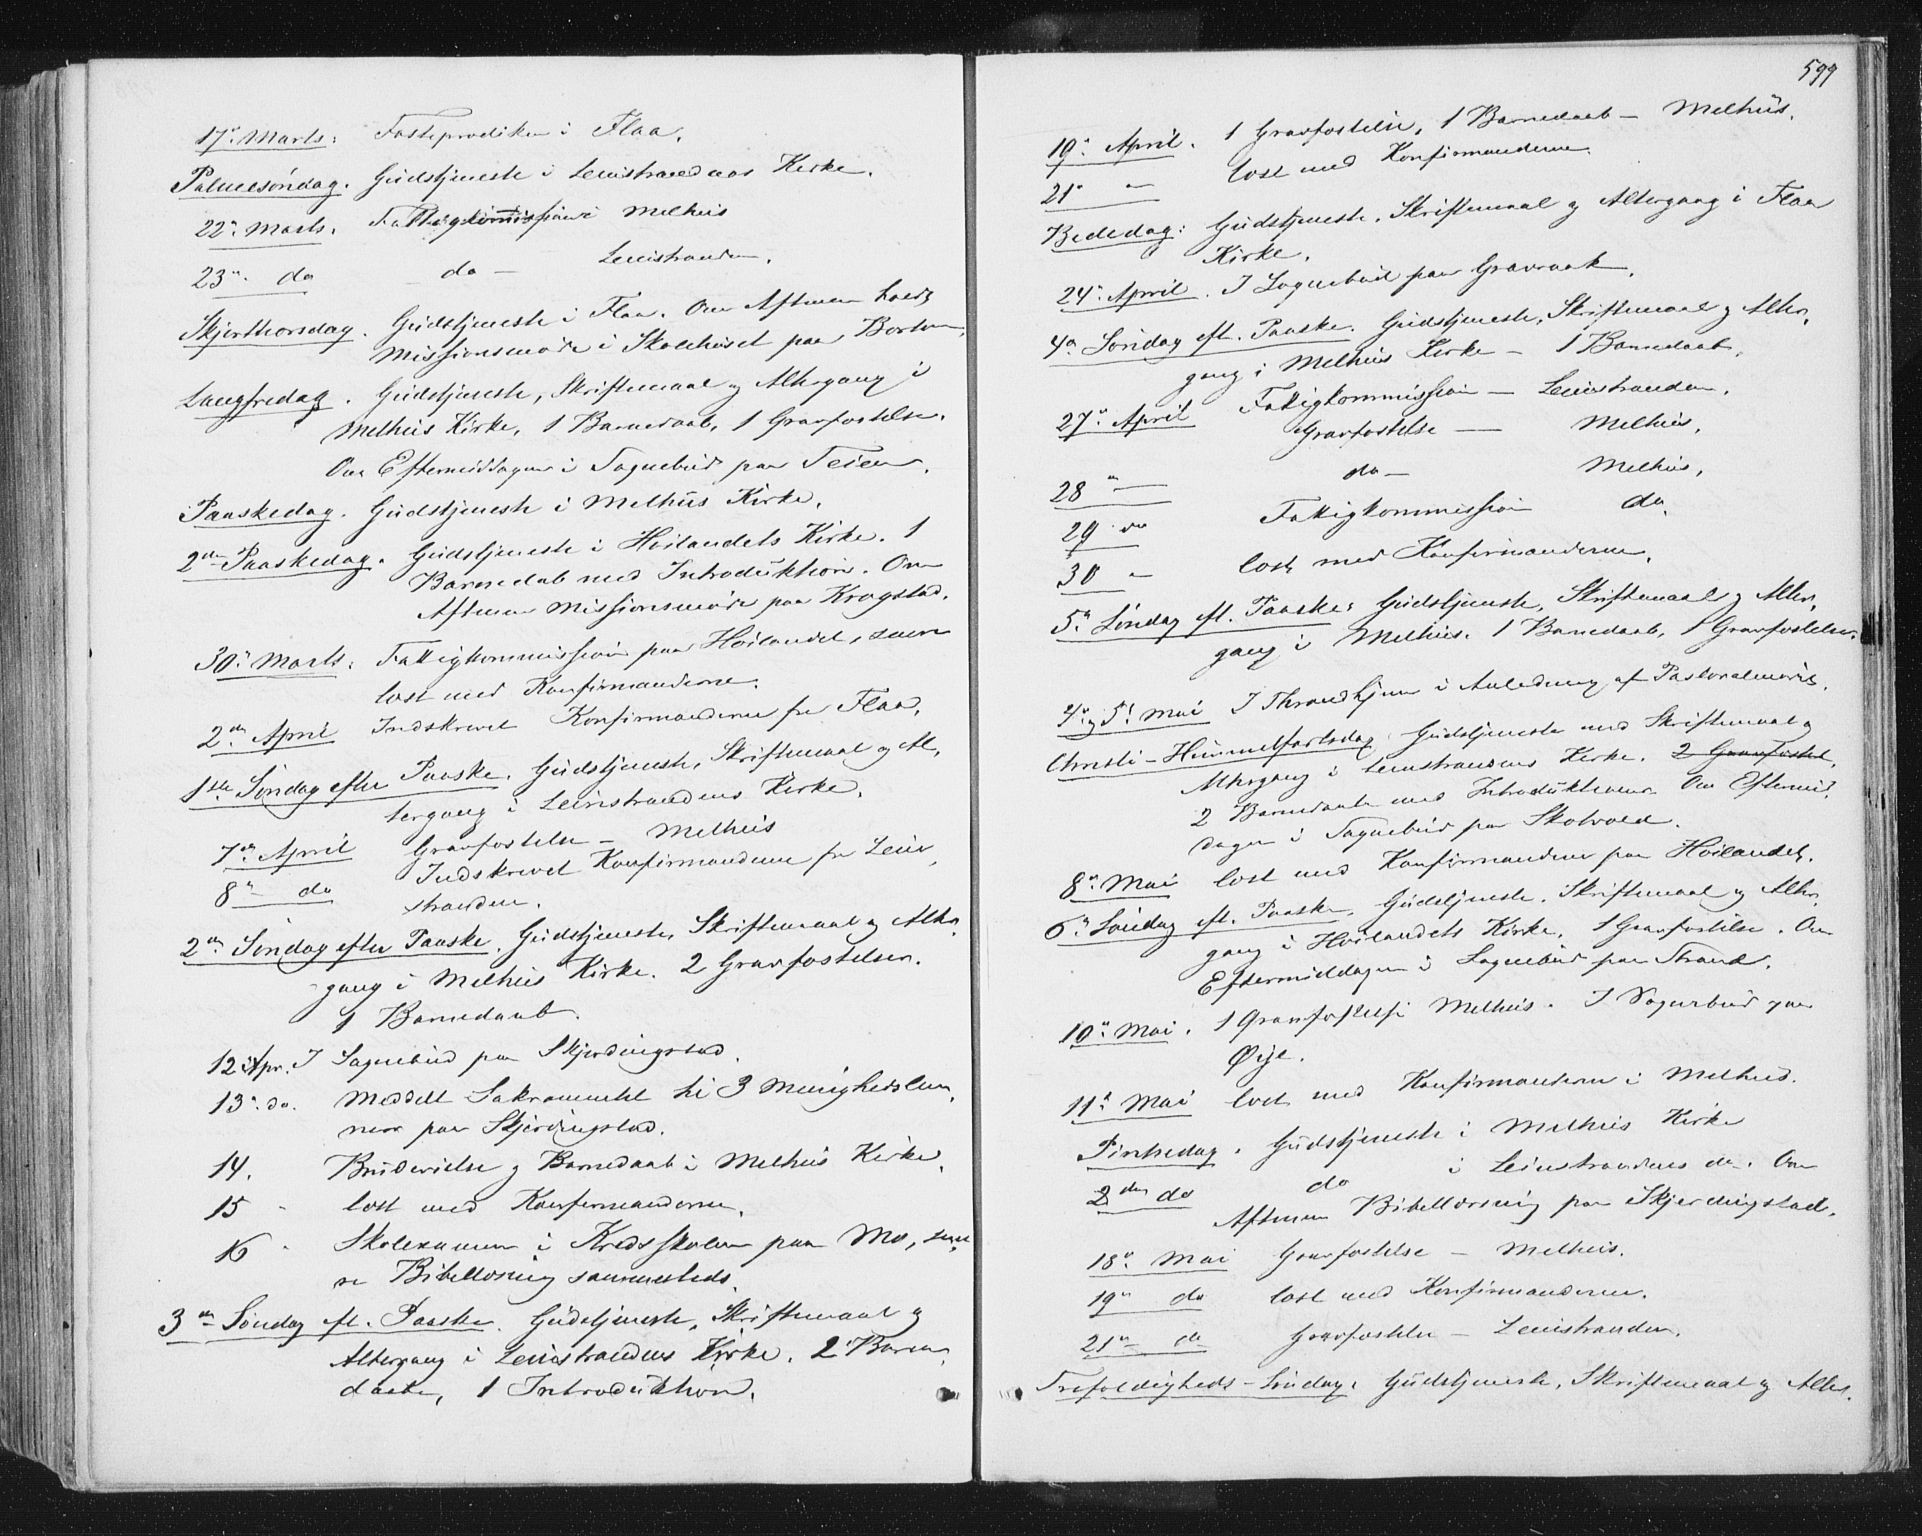 17de Marts: Fasteprædiken i Flaa.
Palmesøndag. Gudstjeneste i Leinstrandens Kirke.
22de Marts. Fattigkommission i Melhus
23de do do — Leinstranden.
Skjærthorsdag. Gudstjeneste i Flaa. Om Aftenen holdt
Missionsmøde i Skolehuset paa Borten.
Langfredag. Gudstjeneste, Skriftemaal og Altergang i
Melhus Kirke, 1 Barnedaab, 1 Gravfæstelse.
Om Eftermiddagen i Sognebud paa Teien.
Paaskedag. Gudstjeneste i Melhus Kirke.
2den Paaskedag. Gudstjeneste i Høilandets Kirke. 1
Barnedab med Introduktion. Om
Aftenen Missionsmøde paa Krogstad.
30te Marts: Fattigkommission paa Høilandet, samt
læst med Konfirmanderne.
2den April Indskrevet Konfirmanderne fra Flaa.
1ste Søndag efter Paaske. Gudstjeneste, Skriftemaal og Al-
tergang i Leinstrandens Kirke.
7de April Gravfæstelse — Melhus
8de do Indskrevet Konfirmanderne fra Lein-
stranden.
2den Søndag efter Paaske. Gudstjeneste, Skriftemaal og Alter-
gang i Melhus Kirke. 2 Gravfæstelser.
1 Barnedaab.
12 Apr. I Sognebud paa Skjerdingstad.
13de do. Meddelt Sakramentet til 3 Menighedslem-
mer paa Skjerdingstad.
14. Brudevielse og Barnedaab i Melhus Kirke.
15 - læst med Konfirmanderne.
16 - Skolexamen i Kredsskolen paa Mo, sene-
re Bibellæsning sammesteds.
3die Søndag eft. Paaske. Gudstjeneste, Skriftemaal og
Altergang i Leinstrandens Kirke. 2 Barne-
daabe, 1 Introduktion.
599
19de April. 1 Gravfæstelse, 1 Barnedaab — Melhus.
21de — læst med Konfirmanderne.
Bededag: Gudstjeneste, Skriftemaal og Altergang i Flaa
Kirke.
24de April. I Sognebud paa Gravraak.
4de Søndag eft. Paaske. Gudstjeneste, Skriftemaal og Alter-
gang i Melhus Kirke — 1 Barnedaab.
27de April Fattigkommission — Leinstranden.
Gravfæstelse — Melhus.
28 — do — Melhus.
29 do Fattigkommission do.
30 — læst med Konfirmanderne.
5te Søndag eft. Paaske: Gudstjeneste, Skriftemaal og Alter-
gang i Melhus. 1 Barnedaab, 1 Gravfæstelse.
4de og 5te Mai I Throndhjem i Anledning af Pastoralmøde.
Christi-Himmelfartsdag. Gudstjeneste med Skriftemaal og
Altergang i Leinstrandens Kirke. 2 Gravfæstel.
2 Barnedaabe med Introduktioner. Om Eftermid-
dagen i Sognebud paa Skolvold.
8de Mai læst med Konfirmanderne paa Høilandet.
6te Søndag eft. Paaske. Gudstjeneste, Skriftemaal og Alter-
gang i Høilandets Kirke, 1 Gravfæstelse. Om
Eftermiddagen i Sognebud paa Strand.
10de Mai. 1 Gravfæstelse i Melhus. I Sognebud paa
Øye.
11te Mai læst med Konfirmanderne i Melhus.
Pintsedag. Gudstjeneste i Melhus Kirke
2den do do i Leinstrandens do. Om
Aftenen Bibellæsning paa Skjerdingstad.
18de Mai Gravfæstelse — Melhus.
19de do læst med Konfirmanderne.
21de do Gravfæstelse — Leinstranden.
Trefoldigheds-Søndag. Gudstjeneste, Skriftemaal og Alter-